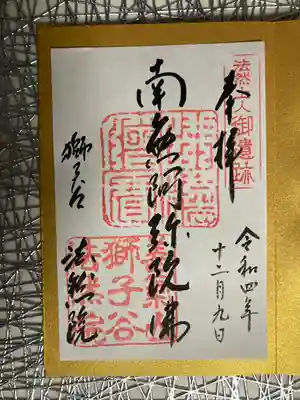 奉拝
法然上人御遺跡
令和四年
十二月九日
南無阿弥陀佛
獅子谷
法然院
獅子谷
法然院